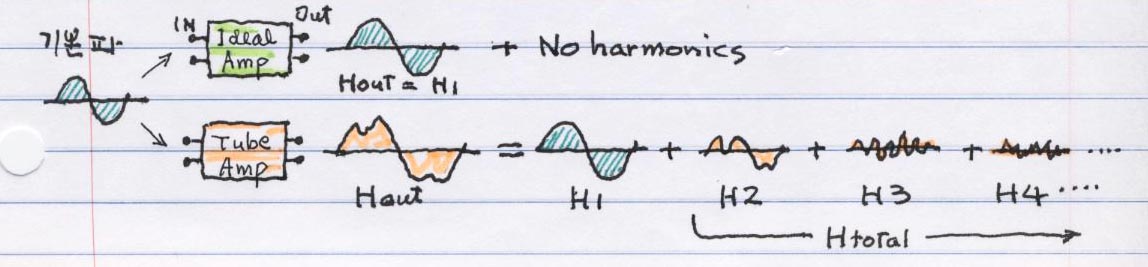 기본파
IN Out
Ideal
Amp
+ No harmonics
Hout = H1
Tube
Amp
= + + + ....
Hout H1 H2 H3 H4 ....
Htotal